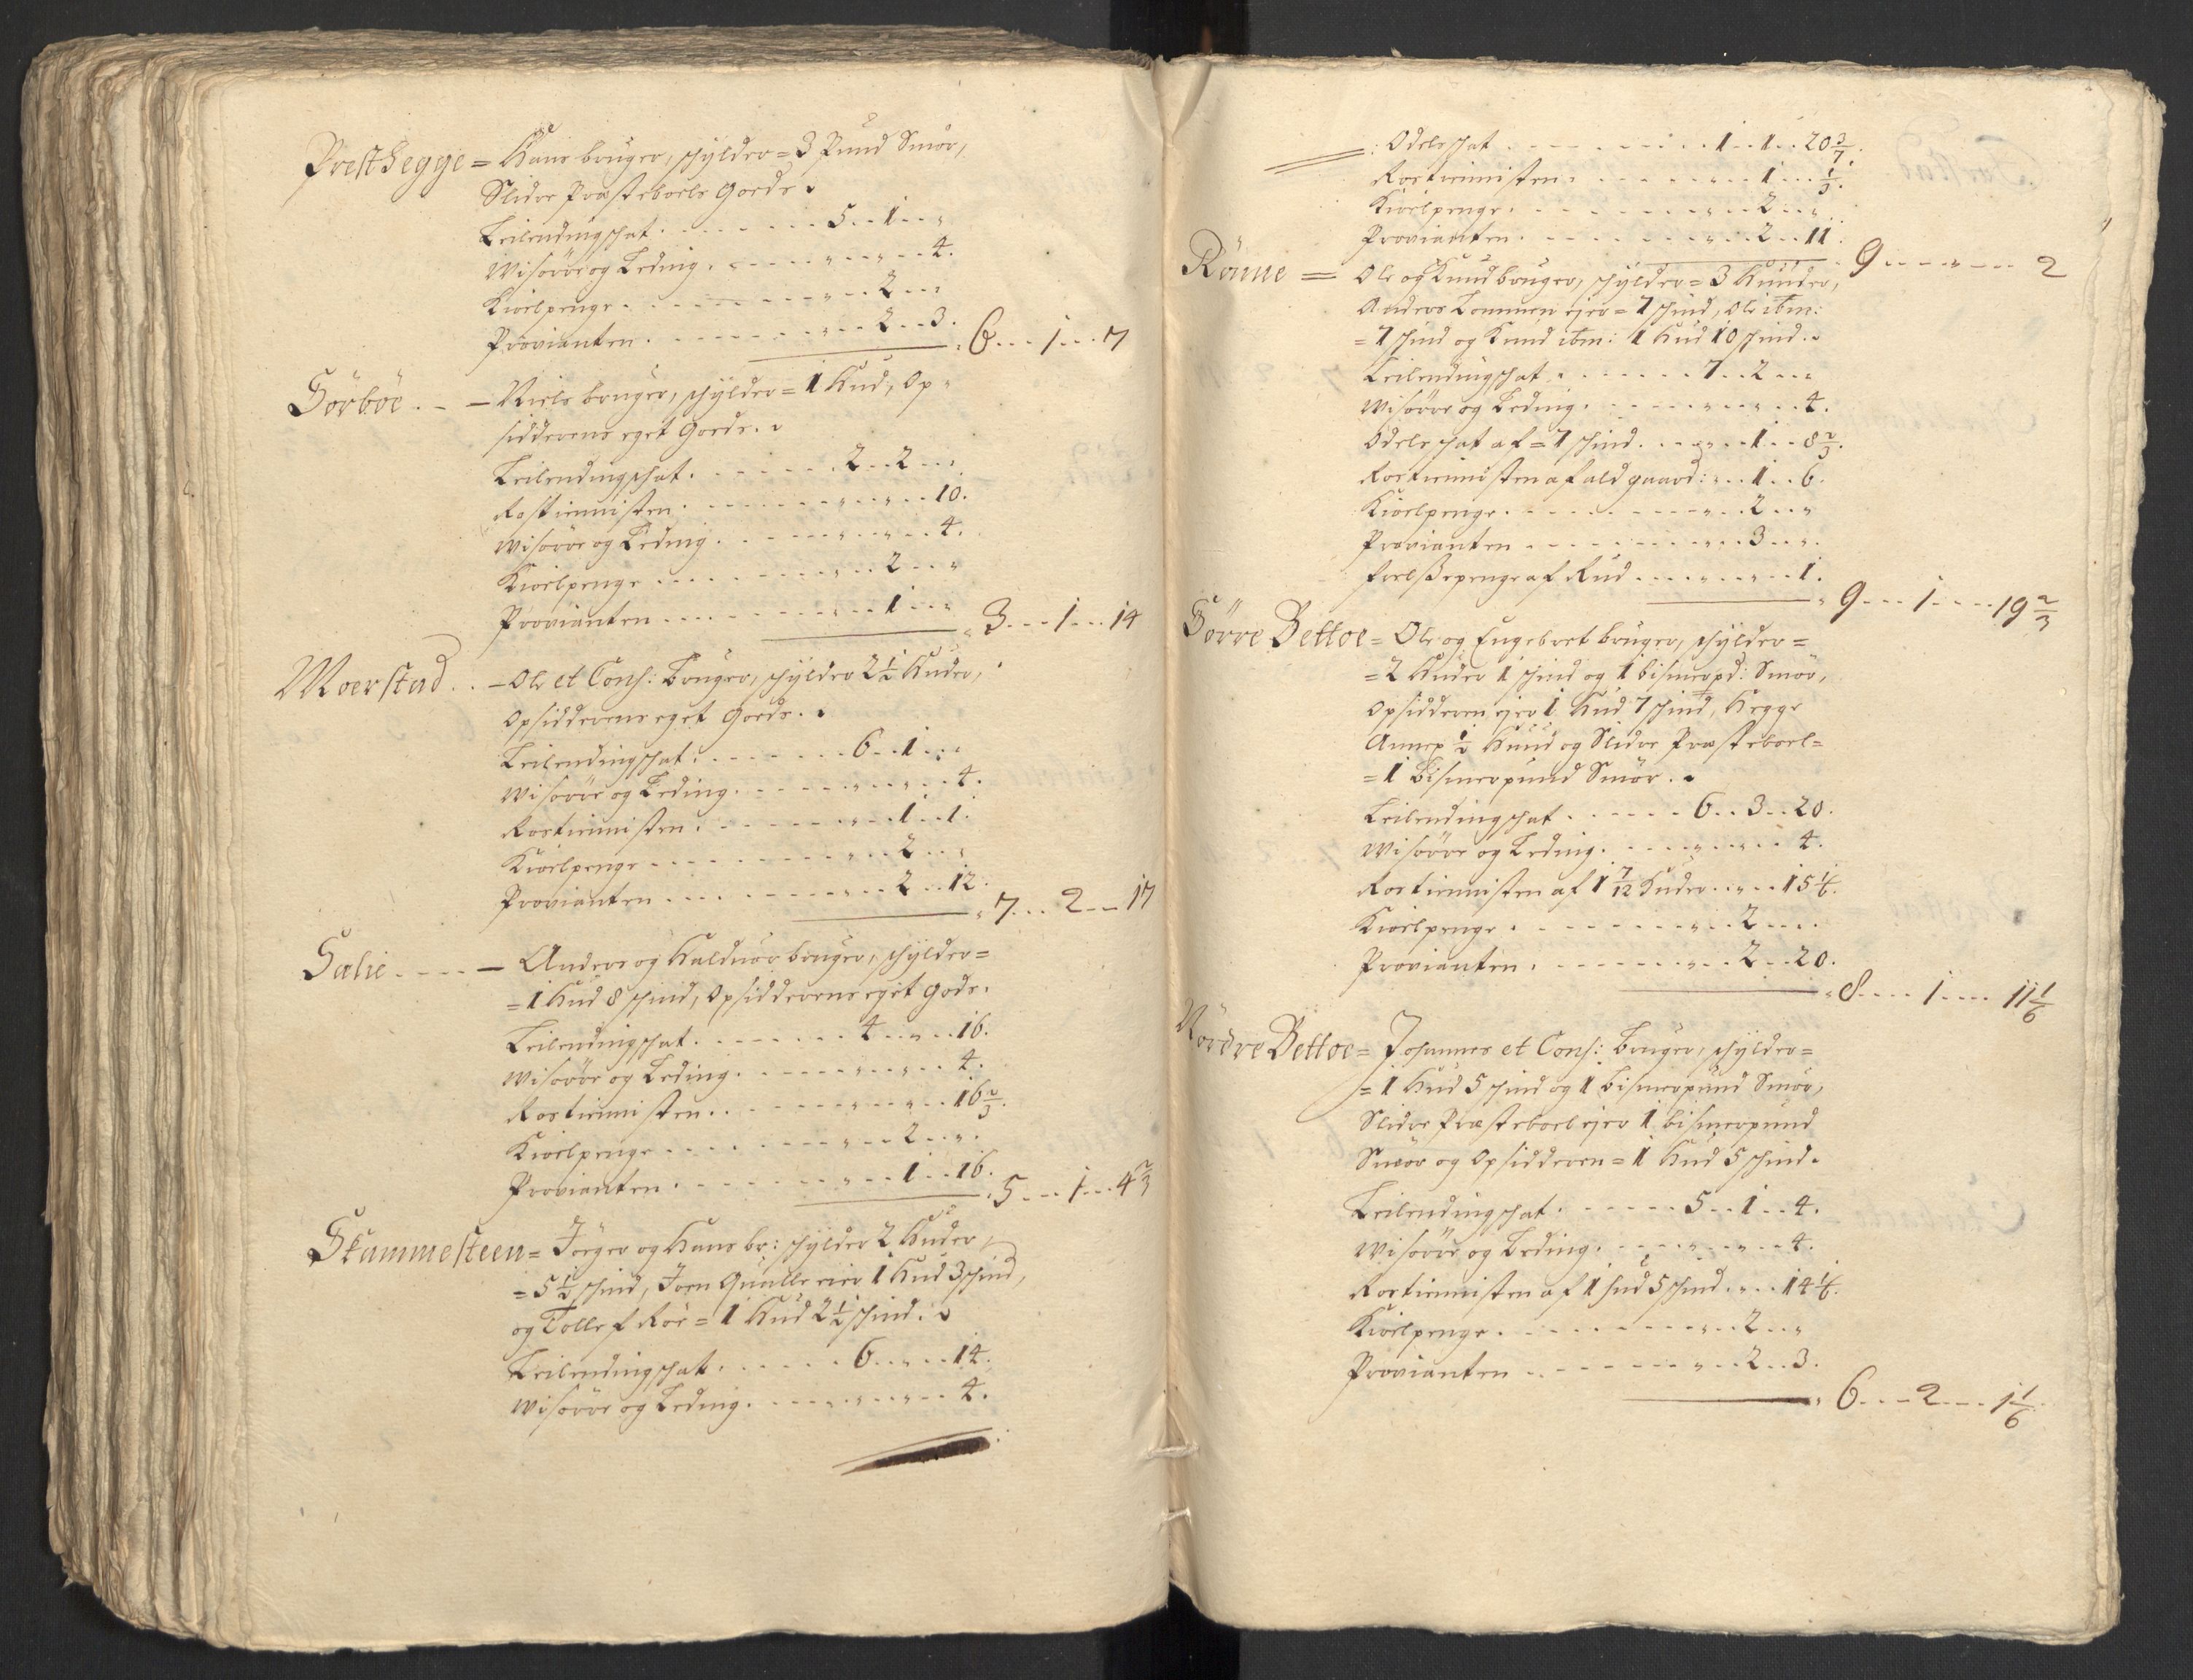 Presthegge = Hans bruger, schylder = 3 Pund Smör,
Slidre Præsteboels Goeds.
Leilendingschat. . . . . 5 . . 1 . . "
Wisörre og Leding. . . " . . " . . 4.
Kioelpenge . . . . " . . 2 . . "
Provianten . . . . " . . 2 . . 3. 6 . . . 1 . . . 7
Sörböe . . — Niels bruger, schylder = 1 Hud, Op=
sidderens eget Goeds.
Leilendingschat. . . . . 2 . . 2 . . "
Rostiennisten . . . . " . . " . . 10.
Wisörre og Leding . . . " . . " . . 4.
Kioelpenge . . . . " . . 2 . . "
Provianten . . . . " . . 1 . . " 3 . . . 1 . . . 14
Moerstad . . — Ole et Cons: Bruger, schylder 2 1/2 Huder,
Opsidderens eget Goeds.
Leilendingschat. . . . . 6 . . 1 . . "
Wisörre og Leding. . . " . . " . . 4.
Rostienisten . . . . " . . 1 . . 1.
Kioelpenge . . . . " . . 2 . . "
Provianten . . . . " . . 2 . . 12. 7 . . . 2 . . . 17
Sælie . . . . — Anders og Halduor bruger, schylder =
= 1 Hud 8 schind, Opsidderens eget Gods.
Leilendingschat. . . . . 4 . . " . . 16.
Wisörre og Leding. . . " . . " . . 4.
Rostiennisten . . . . " . . " . . 16 2/3.
Kioelpenge . . . . " . . 2 . . ".
Provianten . . . . " . . 1 . . 16. 5 . . . 1 . . . 4 2/3
Skammesteen = Jörger og Hans br: schylder 2 Huder
= 5 1/2 schind, Joen Qualle eier 1 Hud 3 schind,
og Tollef Röe = 1 Hud 2 1/2 schind.
Leilendingschat. . . . . 6 . . " . . 14.
Wisörre og Leding. . . " . . " . . 4.
Odelschat . . . . 1 . . 1 . . 20 3/7.
Rostienisten . . . . " . . 1 . . 1/3.
Kioelpenge . . . . " . . 2 . . "
Provianten . . . . " . . 2 . . 11. 9 . . . " . . . 2
Rönne = Ole og Knud bruger, schylder = 3 Hunder,
Anders Lommen ejer = 7 schind, Ole ibm:
= 7 schind og Knud ibm: 1 Hud 10 schind.
Leilendingschat . . . . 7 . . 2 . . "
Wisörre og Leding. . . " . . " . . 4.
Odelschat af = 7 schind. . . " . . 1 . . 8 2/3.
Rostienisten af ald gaard: " . . 1 . . 6.
Kioelpenge . . . . " . . 2 . . "
Provianten . . . . " . . 3 . . ".
foelßepenge af Rud . . . " . . " . . 1. 9 . . . 1 . . . 19 2/3
Sörre Bettoe = Ole og Engebret bruger, schylder =
= 2 Huder 1 schind og 1 bismerpd: Smör,
Opsidderen ejer 1 Hud 7 schind, Hegge
Annex 1/2 Huud og Slidre Præsteboel =
= 1 Bismerpund Smör.
Leilendingschat . . . . 6 . . 3 . . 20.
Wisörre og Leding. . . " . . " . . 4.
Rostienisten af 1 7/12 Huder . . " . . 15 1/6.
Kioelpenge . . . . " . . 2 . . .
Provianten . . . . " . . 2 . . 20. 8 . . . 1 . . . 11 1/6
Nördre Bettoe = Johannes et Cons: Bruger, schylder =
= 1 Hud 5 schind og 1 Bismerpund Smör,
Slidre Præsteboel ejer 1 bismerpund
Smör og Opsidderen = 1 Hud 5 schind.
Leilendingschat . . . . 5 . . 1 . . 4.
Wisörre og Leding. . . " . . " . . 4.
Rostienisten af 1 hud 5 schind . . " . . 14 1/6.
Kioelpenge . . . . " . . 2 . . "
Provianten . . . . " . . 2 . . 3. 6 . . . 2 . . . 1 1/6